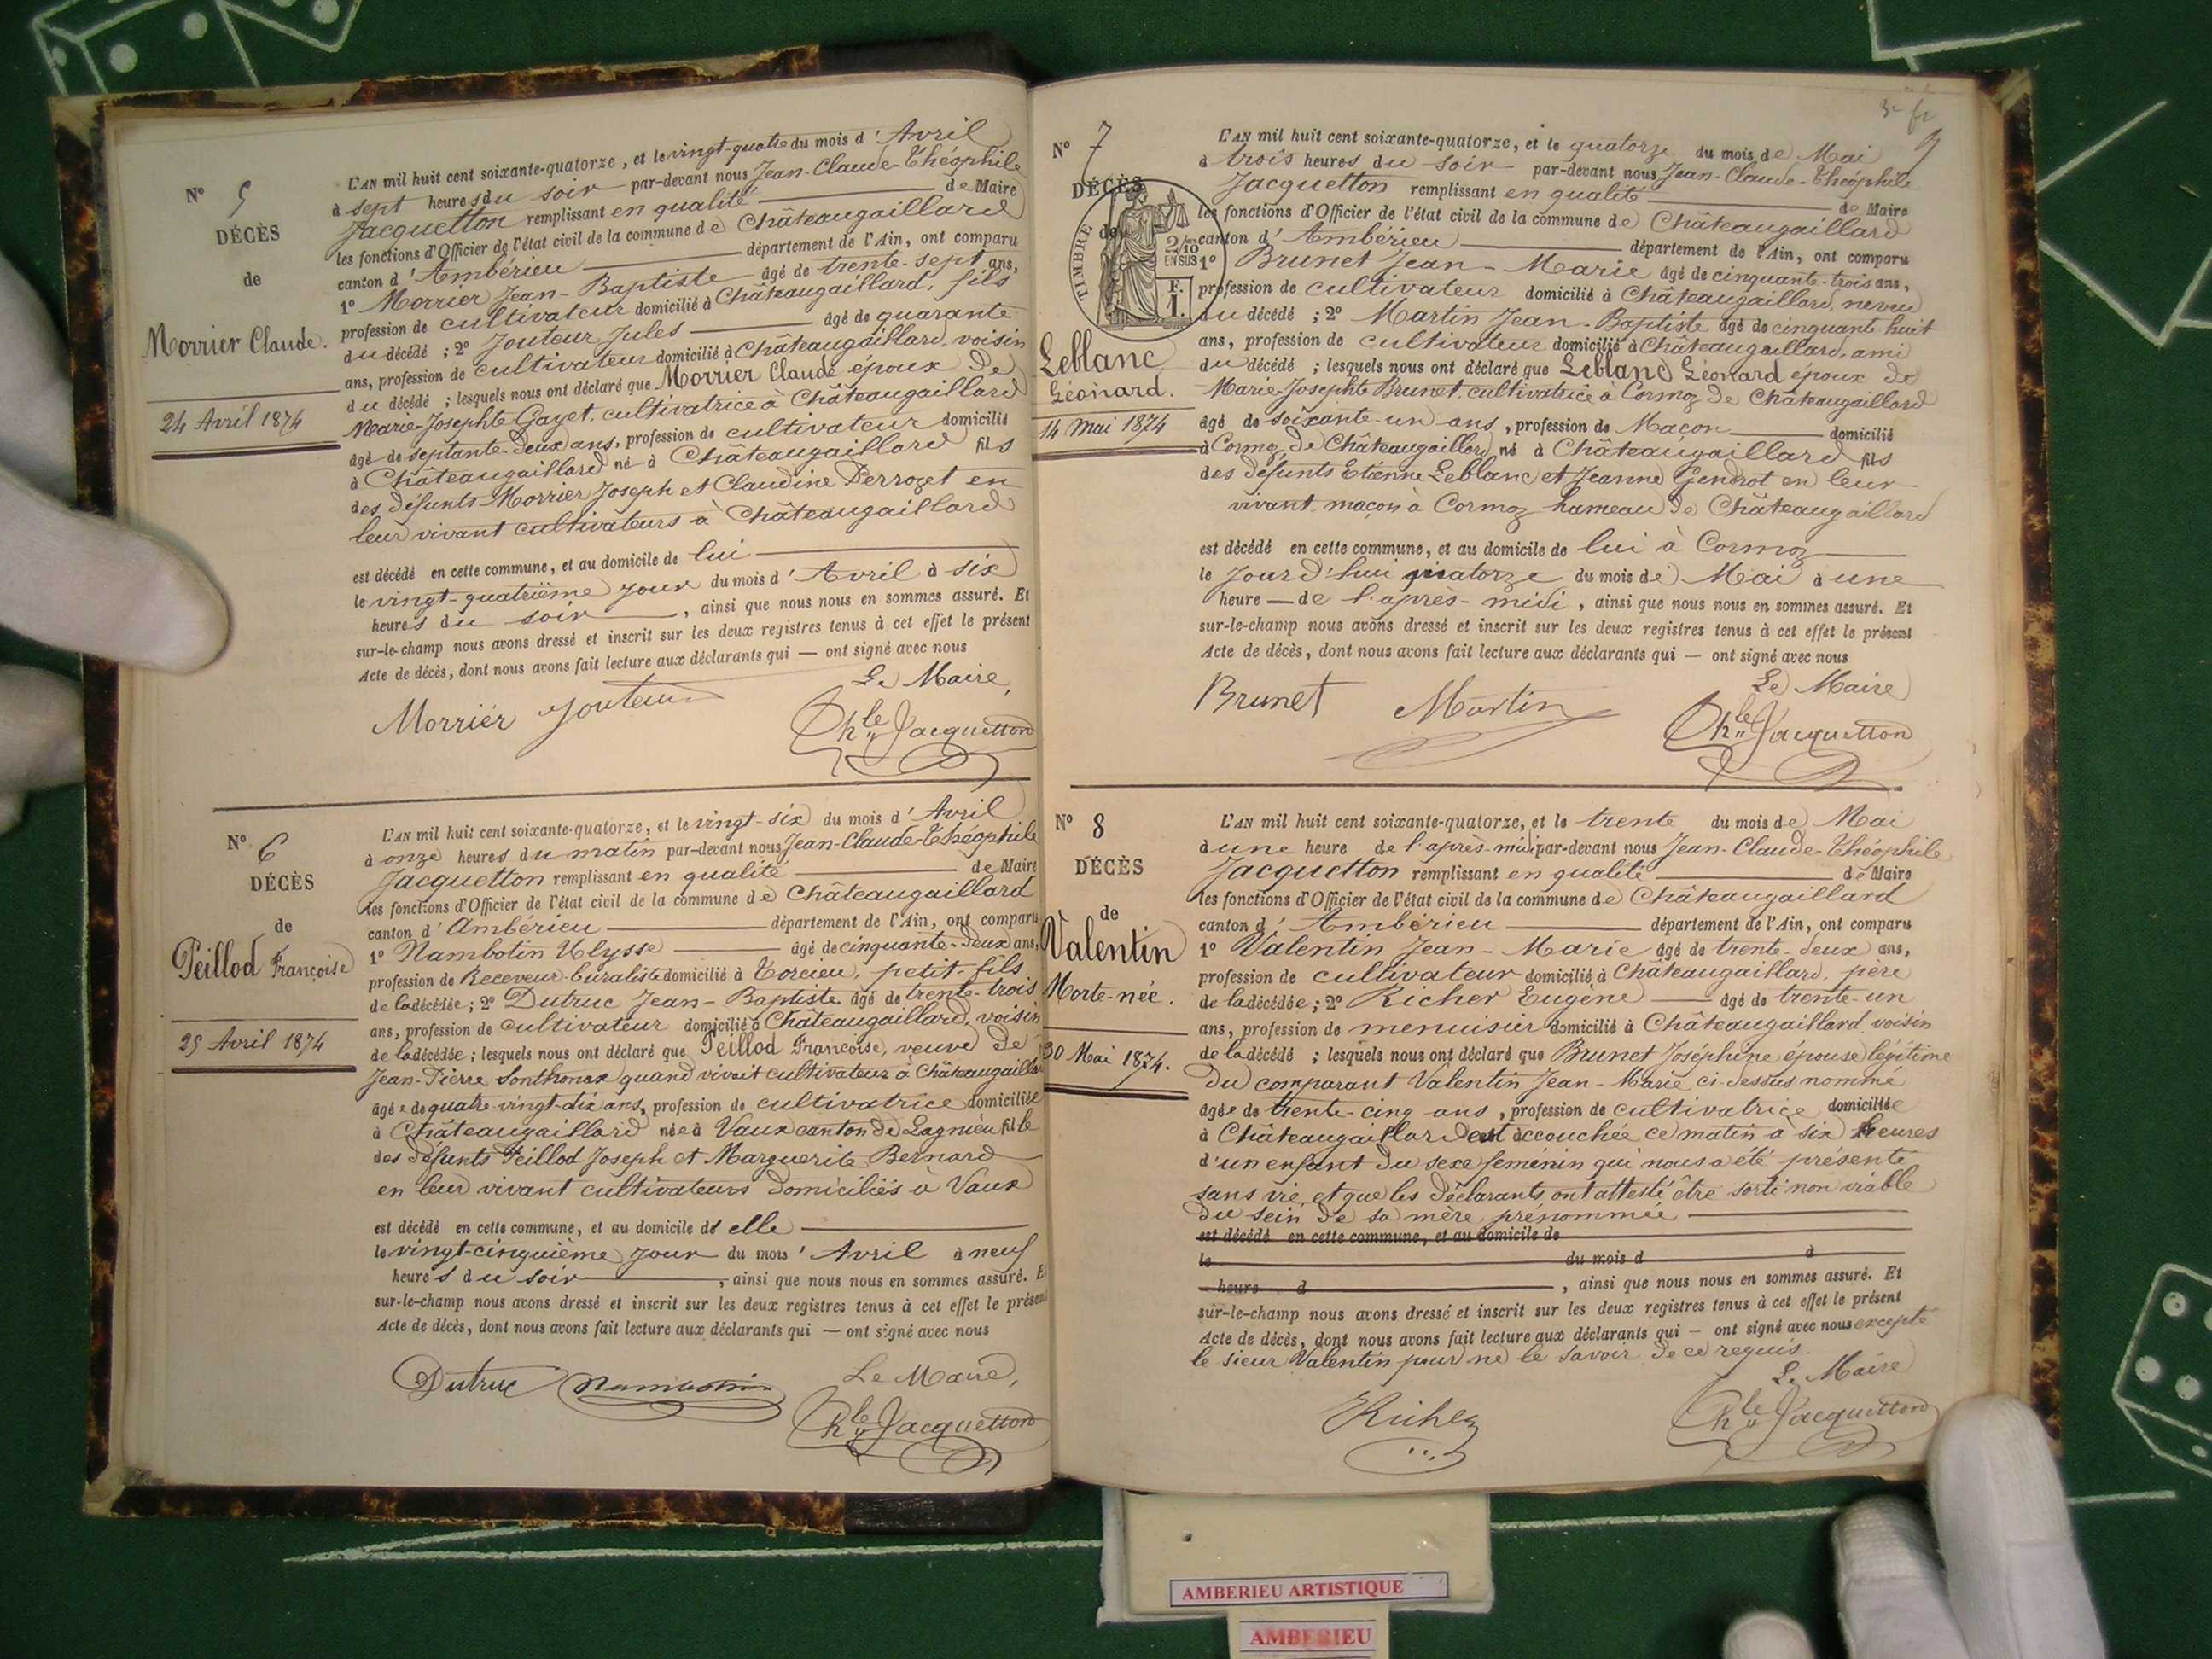 N° 5
DÉCÈS
de
Morrier Claude.
24 Avril 1874
L'AN mil huit cent soixante-quatorze, et le vingt-quatre du mois d'Avril
à sept heures du soir par-devant nous Jean-Claude-Théophile
Jacquetton remplissant en qualité de Maire
les fonctions d'Officier de l'état civil de la commune de Châteaugaillard
canton d'Ambérieu département de l'Ain, ont comparu
1° Morrier Jean-Baptiste âgé de trente-sept ans,
profession de cultivateur domicilié à Châteaugaillard, fils
du décédé ; 2° Jouteur Jules âgé de quarante
ans, profession de cultivateur domicilié à Châteaugaillard, voisin
du décédé ; lesquels nous ont déclaré que Morrier Claude époux de
Marie-Josephte Gayet, cultivatrice à Châteaugaillard
âgé de septante-deux ans, profession de cultivateur domicilié
à Châteaugaillard né à Châteaugaillard fils
des défunts Morrier Joseph et Claudine Derrozet en
leur vivant cultivateurs à Châteaugaillard
est décédé en cette commune, et au domicile de lui
le vingt-quatrième jour du mois d'Avril à six
heures du soir , ainsi que nous nous en sommes assuré. Et
sur-le-champ nous avons dressé et inscrit sur les deux registres tenus à cet effet le présent
Acte de décès, dont nous avons fait lecture aux déclarants qui — ont signé avec nous
Le Maire,
Morrier Jouteur Ch.le Jacquetton
N° 6
DÉCÈS
de
Peillod Françoise
25 Avril 1874
L'AN mil huit cent soixante-quatorze, et le vingt-six du mois d'Avril
à onze heures du matin par-devant nous Jean-Claude-Théophile
Jacquetton remplissant en qualité de Maire
les fonctions d'Officier de l'état civil de la commune de Châteaugaillard
canton d'Ambérieu département de l'Ain, ont comparu
1° Nambotin Ulysse âgé de cinquante-deux ans,
profession de Receveur-buraliste domicilié à Torcieu, petit-fils
de la décédée ; 2° Dutruc Jean-Baptiste âgé de trente-trois
ans, profession de cultivateur domicilié à Châteaugaillard, voisin
de la décédée ; lesquels nous ont déclaré que Peillod Françoise, veuve de
Jean-Pierre Sonthonax quand vivait cultivateur à Châteaugaillard
âgée de quatre-vingt-dix ans, profession de cultivatrice domiciliée
à Châteaugaillard née à Vaux canton de Lagnieu fille
des défunts Peillod Joseph et Marguerite Bernard
en leur vivant cultivateurs domiciliés à Vaux
est décédé en cette commune, et au domicile de elle
le vingt-cinquième jour du mois d'Avril à neuf
heures du soir , ainsi que nous nous en sommes assuré. Et
sur-le-champ nous avons dressé et inscrit sur les deux registres tenus à cet effet le présent
Acte de décès, dont nous avons fait lecture aux déclarants qui — ont signé avec nous
Le Maire,
Dutruc Nambotin Ch.le Jacquetton
N° 7
DÉCÈS
de
TIMBRE
2/10
EN SUS
F.
1.
Leblanc
Léonard.
14 Mai 1874
L'AN mil huit cent soixante-quatorze, et le quatorze du mois de Mai
à trois heures du soir par-devant nous Jean-Claude-Théophile
Jacquetton remplissant en qualité de Maire
les fonctions d'Officier de l'état civil de la commune de Châteaugaillard
canton d'Ambérieu département de l'Ain, ont comparu
1° Brunet Jean-Marie âgé de cinquante-trois ans,
profession de cultivateur domicilié à Châteaugaillard, neveu
du décédé ; 2° Martin Jean-Baptiste âgé de cinquante huit
ans, profession de cultivateur domicilié à Châteaugaillard, ami
du décédé ; lesquels nous ont déclaré que Leblanc Léonard époux de
Marie-Josephte Brunet, cultivatrice à Cormoz de Châteaugaillard
âgé de soixante-un ans, profession de Maçon domicilié
à Cormoz, de Châteaugaillard, né à Châteaugaillard fils
des défunts Etienne Leblanc et Jeanne Gendrot en leur
vivant maçon à Cormoz hameau de Châteaugaillard
est décédé en cette commune, et au domicile de lui à Cormoz
le jourd'hui quatorze du mois de Mai à une
heure — de l'après-midi, ainsi que nous nous en sommes assuré. Et
sur-le-champ nous avons dressé et inscrit sur les deux registres tenus à cet effet le présent
Acte de décès, dont nous avons fait lecture aux déclarants qui — ont signé avec nous
Le Maire
Brunet Martin Ch.le Jacquetton
N° 8
DÉCÈS
de
Valentin
Morte-née.
30 Mai 1874.
L'AN mil huit cent soixante-quatorze, et le trente du mois de Mai
à une heure de l'après-midi par-devant nous Jean-Claude-Théophile
Jacquetton remplissant en qualité de Maire
les fonctions d'Officier de l'état civil de la commune de Châteaugaillard
canton d'Ambérieu département de l'Ain, ont comparu
1° Valentin Jean-Marie âgé de trente-deux ans,
profession de cultivateur domicilié à Châteaugaillard, père
de la décédée ; 2° Richer Eugène âgé de trente-un
ans, profession de menuisier domicilié à Châteaugaillard, voisin
de la décédé ; lesquels nous ont déclaré que Brunet Joséphine épouse légitime
du comparant Valentin Jean-Marie ci-dessus nommé
âgée de trente-cinq ans, profession de cultivatrice domiciliée
à Châteaugaillard est accouchée ce matin à six heures
d'un enfant du sexe feminin qui nous a été présenté
sans vie et que les déclarants ont attesté être sorti non viable
du sein de sa mère prénommée
est décédé en cette commune, et au domicile de
le du mois d à
heure d , ainsi que nous nous en sommes assuré. Et
sur-le-champ nous avons dressé et inscrit sur les deux registres tenus à cet effet le présent
Acte de décès, dont nous avons fait lecture aux déclarants qui — ont signé avec nous excepté
le sieur Valentin pour ne le savoir de ce requis.
Le Maire
Richer Ch.le Jacquetton
AMBERIEU ARTISTIQUE
AMBERIEU